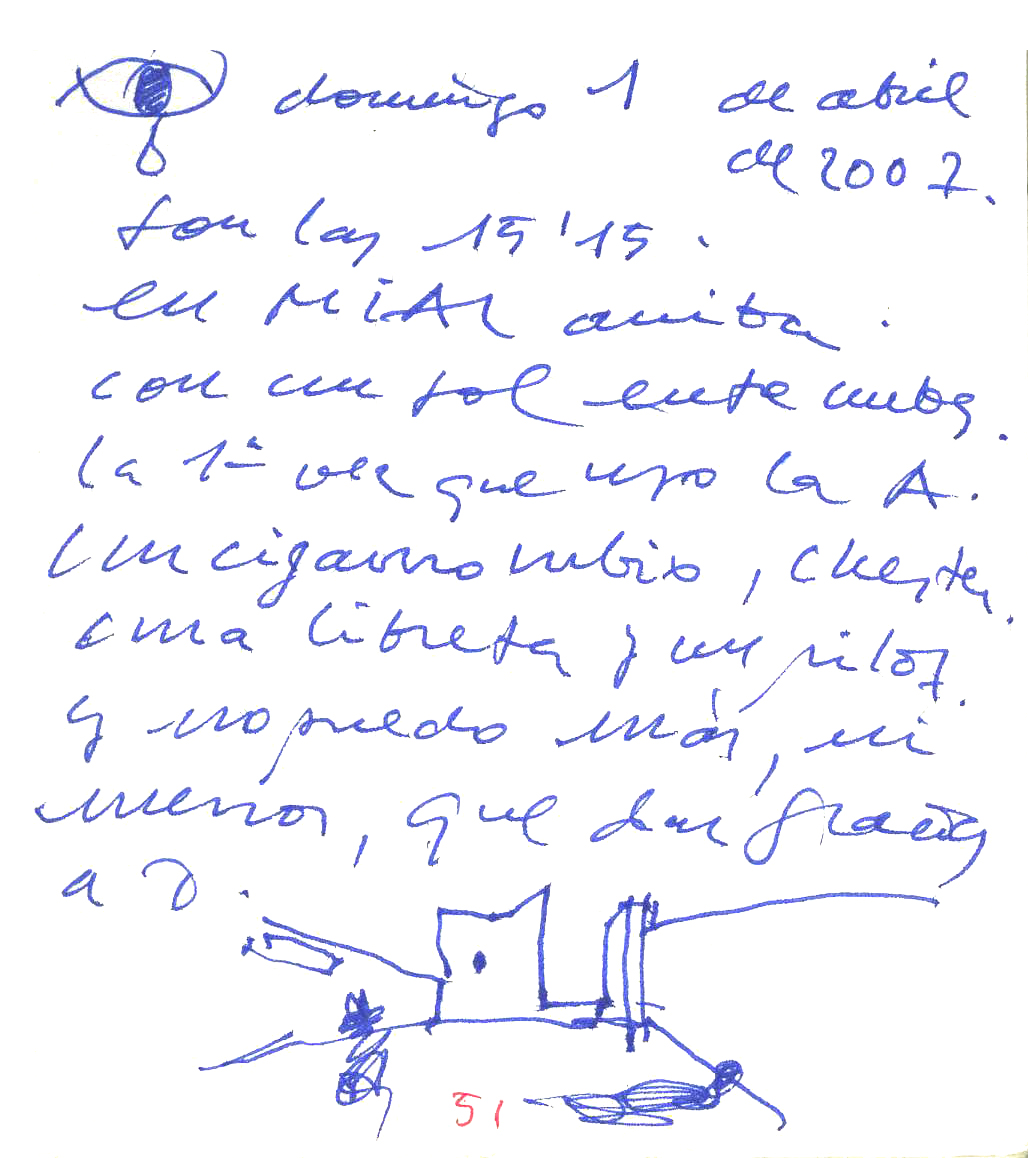 domingo 1 de abril
de 2007.
son las 15'15.
en MIAL arriba.
con un sol entre nubes.
la 1ª vez que uso la A.
un cigarro rubio, Chester.
una libreta y un pilot.
y no puedo más, ni
menos, que dar gracias
a D.
51